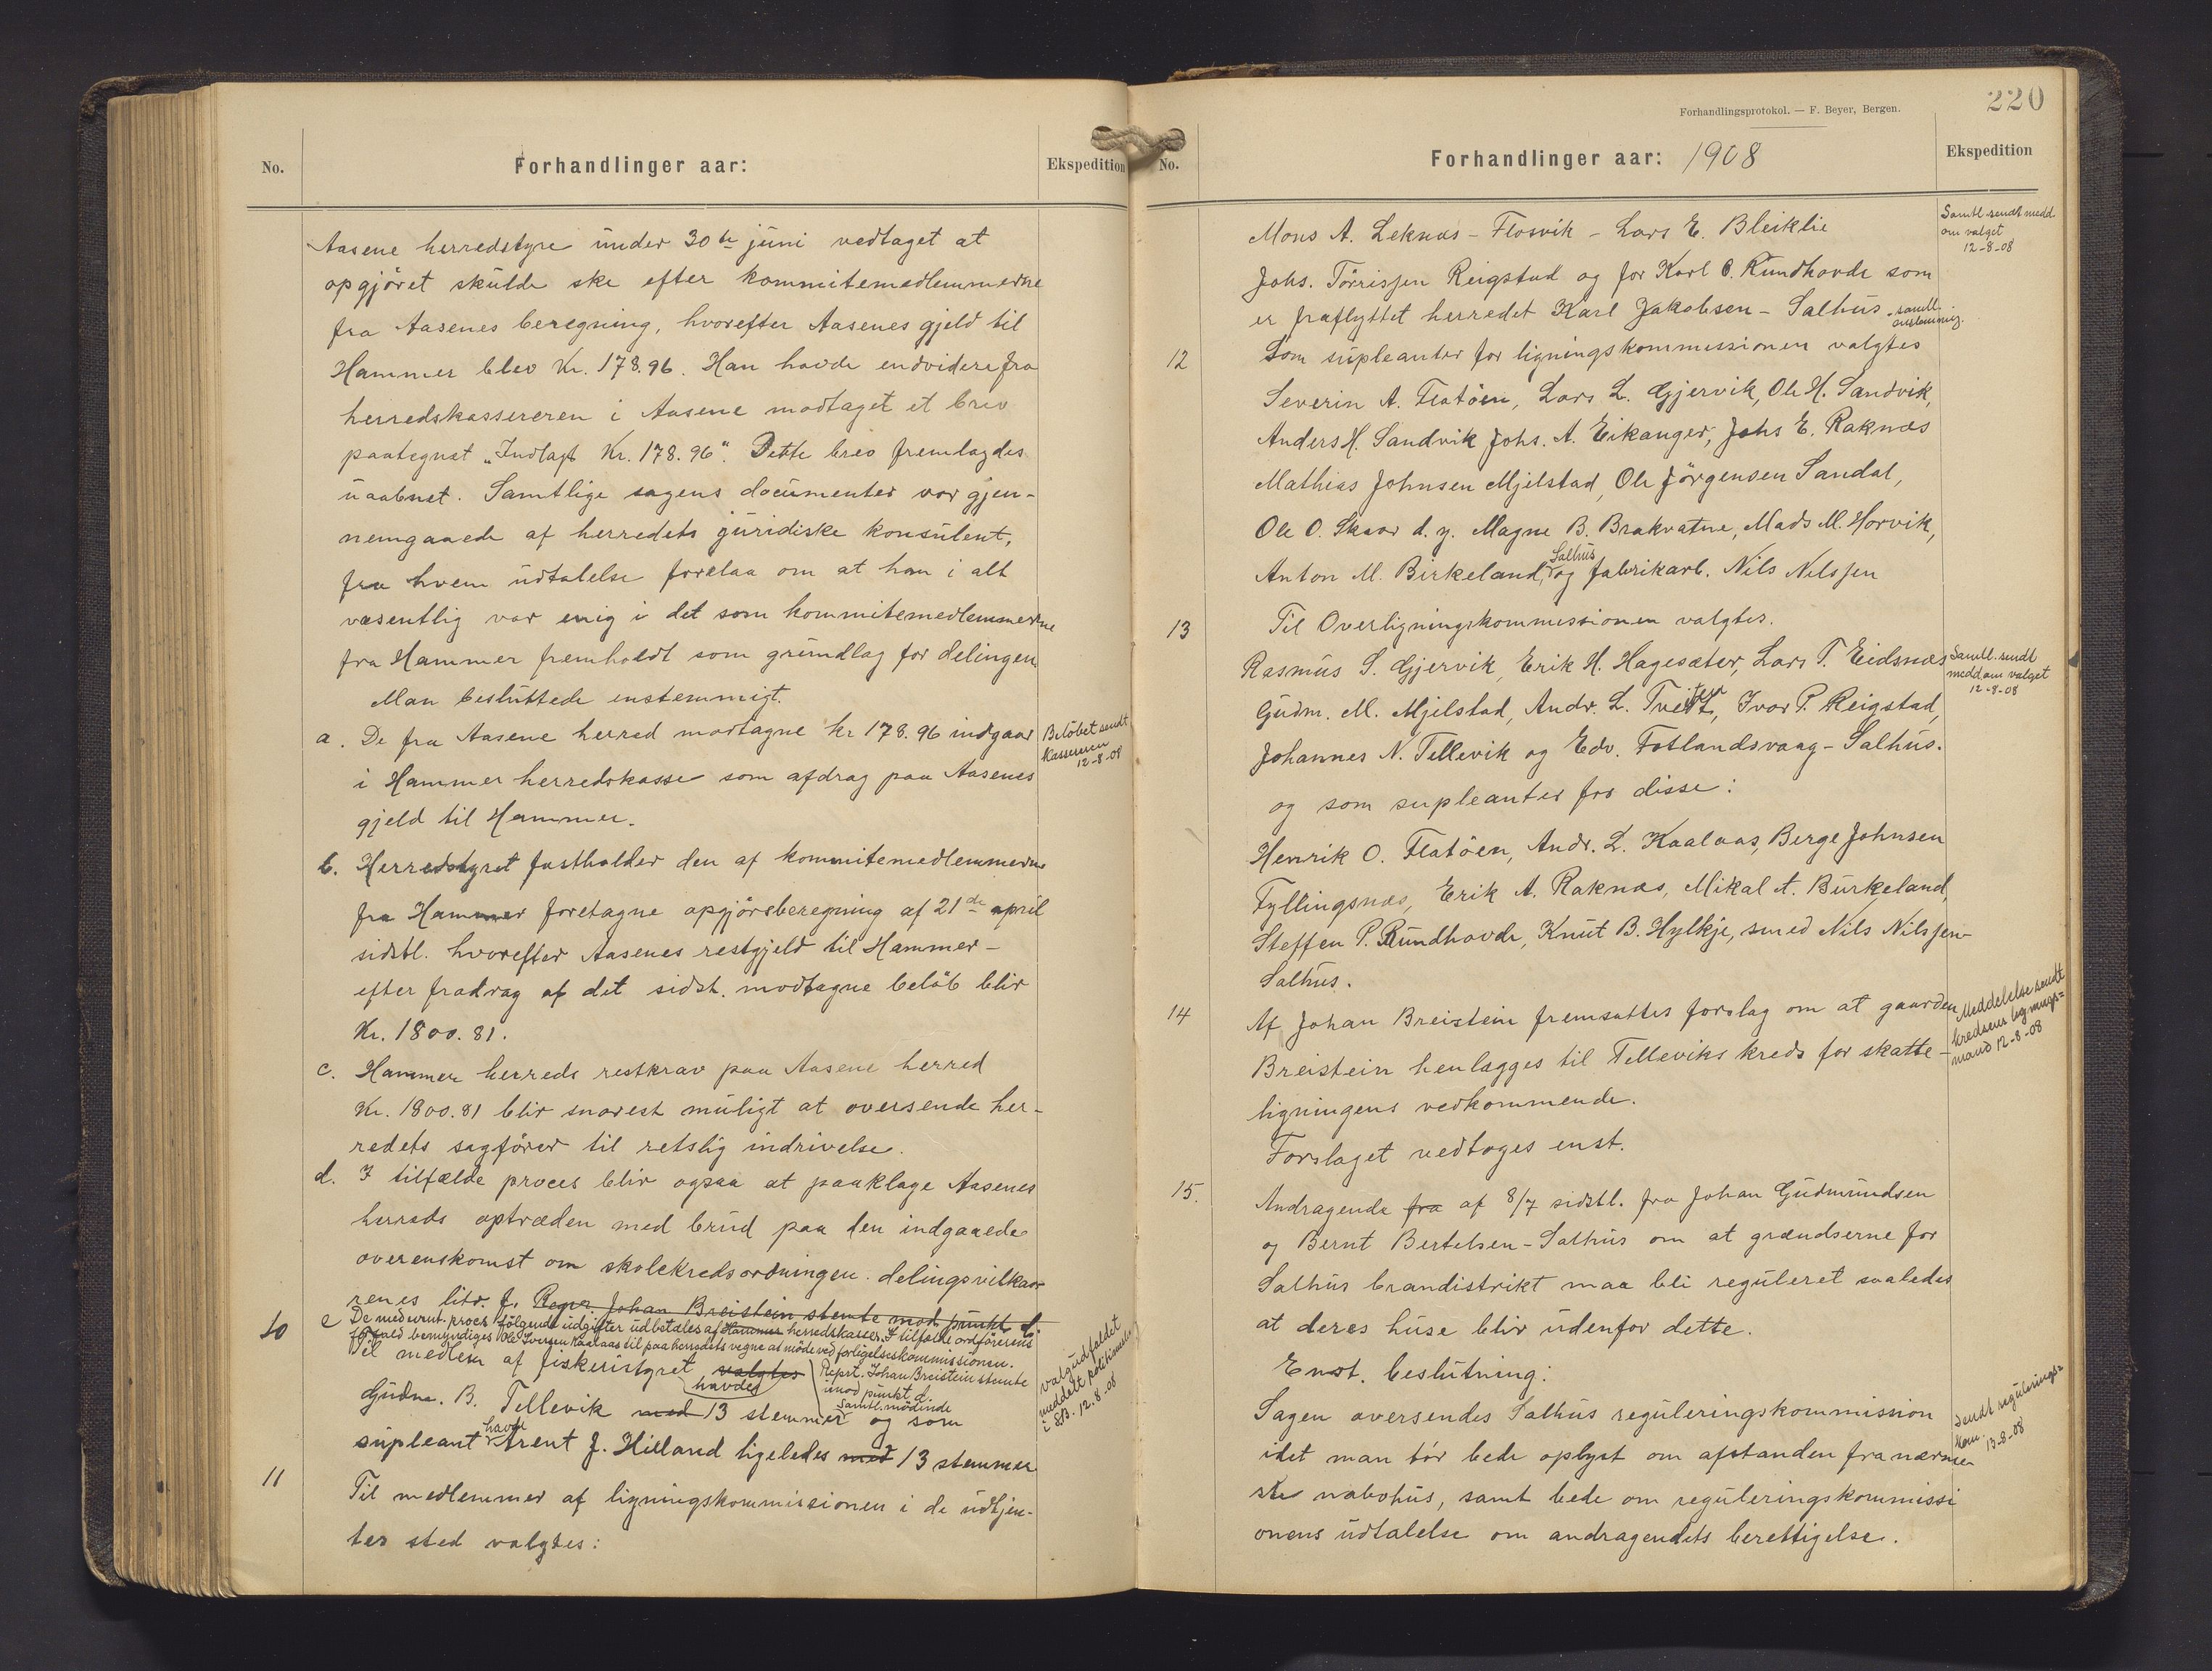 No.
Forhandlinger aar:
Ekspedition
Aasene herredstyre under 30te juni vedtaget at
opgjöret skulde ske efter kommitemedlemmerne
fra Aasenes beregning, hvorefter Aasenes gjeld til
Hammer blev Kr. 178.96. Han havde endvidere fra
herredskassereren i Aasene modtaget et brev
paategnet „Indlagt Kr. 178.96“. Dette brev fremlagdes
uaabnet. Samtlige sagens documenter var gjen-
nemgaaede af herredets juridiske konsulent,
fra hvem udtalelse forelaa om at han i alt
væsentlig var enig i det som kommitemedlemmerne
fra Hammer fremholdt som grundlag for delingen.
Man besluttede enstemmigt.
a. De fra Aasene herred modtagne kr 178.96 indgaar
i Hammer herredskasse som afdrag paa Aasenes
gjeld til Hammer.
Belöbet sendt
Kassereren
12-8-08
b. Herredstyret fastholder den af kommitemedlemmerne
fra Hammer foretagne opgjörsberegning af 21de april
sidstl. hvorefter Aasenes restgjeld til Hammer -
efter fradrag af det sidst. modtagne belöb blir
Kr. 1800.81.
c. Hammer herreds restkrav paa Aasene herred
Kr. 1800.81 blir snarest muligt at oversende her-
redets sagförer til retslig indrivelse.
d. I tilfælde proces blir ogsaa at paaklage Aasenes
herreds optræden med brud paa den indgaaede
overenskomst om skolekredsordningen. delingsvilkaar
renes litr. f. Repr. Johan Breistein stemte mod punkt d.
e De med evnt. proces fölgende udgifter udbetales af Hammer herredskasse. I tilfælde ordförerens
forfald bemyndiges Ole Iversen Kaalaas til paa herredets vegne at möde ved forligelseskommissionen.
Reprt. Johan Breistein stemte
imod punkt d.
10 Til medlem af fiskeristyret valgtes
havdes
Gudm. B. Tellevik med 13 stemmer samtl. mödende og som
supleant havde Arent J. Hilland ligeledes med 13 stemmer
valgudfaldet
meddelt politimester
i 12.8-08
11 Til medlemmer af ligningskommissionen i de udtjen-
tes sted valgtes:
220
Forhandlingsprotokol. — F. Beyer, Bergen.
No.
Forhandlinger aar: 1908
Ekspedition
Mons A. Leknæs - Flosvik - Lars E. Bleiklie
Johs. Törrisjen Reigstad og for Karl O. Rundhovde som
er fraflyttet herredet Karl Jakobsen - Salhus. samtl.
enstemmig.
Samtl. sendt medd.
om valget
12-8-08
12 Som supleanter for ligningskommissionen valgtes
Severin A. Flatöen, Lars L. Gjervik, Ole H. Sandvik,
Anders H. Sandvik Johs. A. Eikanger, Johs E. Raknæs
Mathias Johnsen Mjelstad, Ole Jörgensen Sandal,
Ole O. Skaar d. y. Magne B. Brakvatne, Mads M. Horvik,
Anton M. Birkeland, Salhus og fabrikarb. Nils Nilsjen
13 Til Overligningskommissionen valgtes.
Rasmus S. Gjervik, Erik H. Hagesæter, Lars T. Eidsnæs
Gudm. M. Mjelstad, Andr. L. Tveiten, Ivar P. Reigstad,
Johannes N. Tellevik og Edv. Fotlandsvaag - Salhus.
Samtl. sendt
medd om valget
12-8-08
og som supleanter for disse:
Henrik O. Flatöen, Andr. L. Kaalaas, Berge Johnsen
Fyllingsnæs, Erik A. Raknæs, Mikal A. Burkeland,
Steffen P. Rundhovde, Knut B. Hylkje, smed Nils Nilsjen-
Salhus.
14 Af Johan Breistein fremsattes forslag om at gaarden
Breistein henlægges til Telleviks kreds for skatte-
ligningens vedkommende.
Forslaget vedtoges enst.
Meddelelse sendt
kredsens lignings=
mand 12-8-08
15. Andragende fra af 8/7 sidstl. fra Johan Gudmundsen
og Bernt Bertelsen - Salhus om at grændserne for
Salhus branddistrikt maa bli reguleret saaledes
at deres huse blir udenfor dette.
Enst. beslutning:
Sagen oversendes Salhus reguleringskommission
idet man bör bede oplyst om afstanden fra nærme
ste nabohus, samt bede om reguleringskommissi
onens udtalelse om andragendets berettigelse.
Sendt regulerings=
kom. 13-8-08